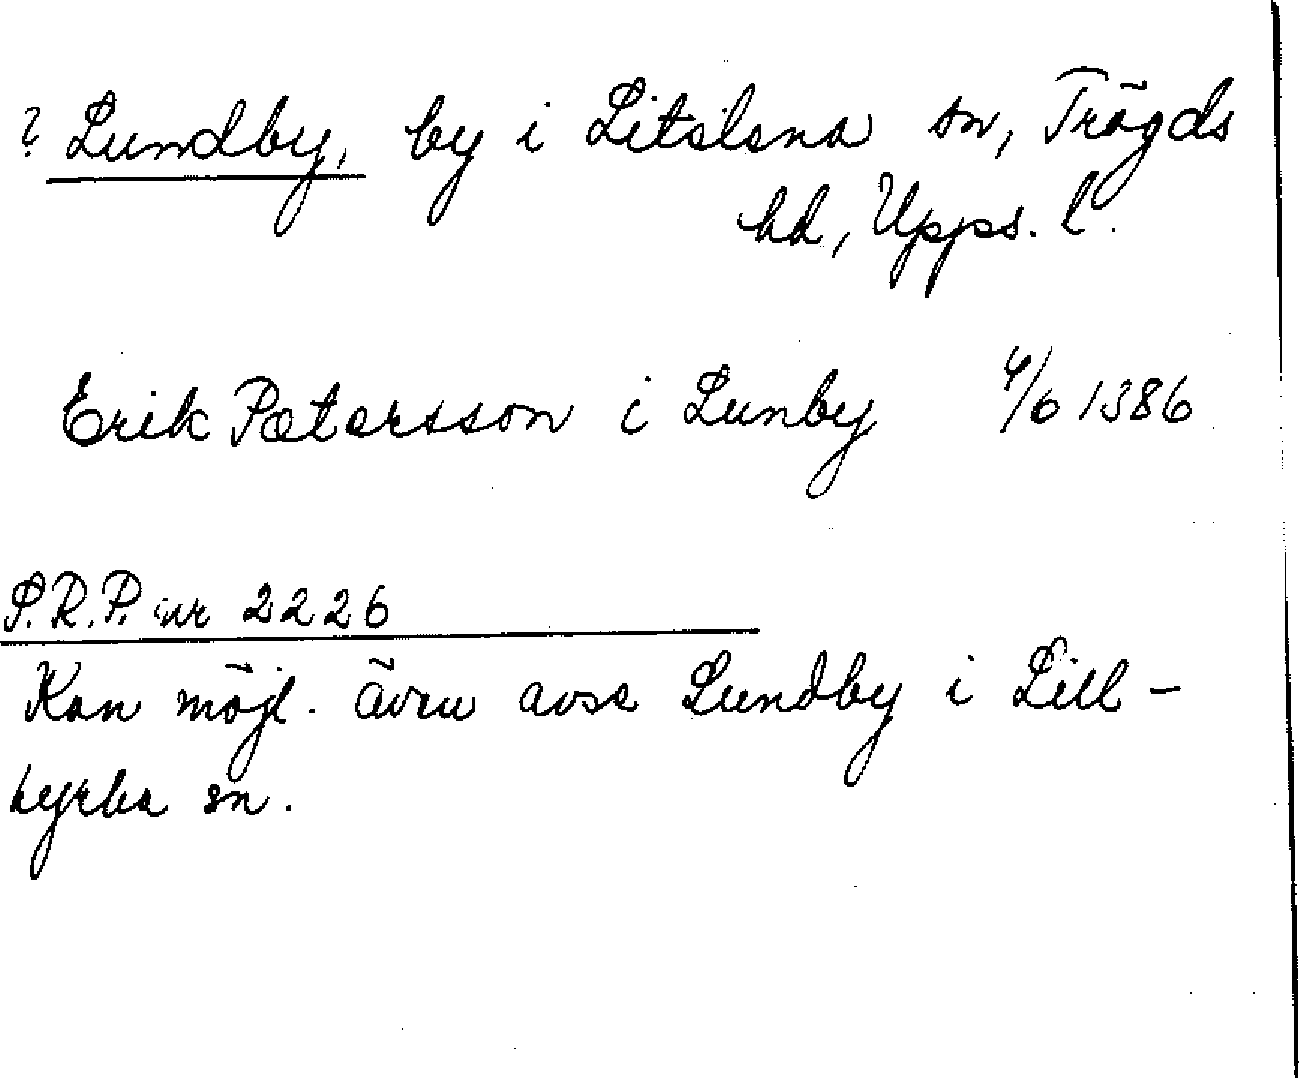 ? Lundby, by i Litslena sn, Trögds
hd, Upps. l.
Erik Pætersson i Lunby 4/6 1386
S.R.P. nr 2226
Kan möjl. även avse Lundby i Lill-
kyrka sn.